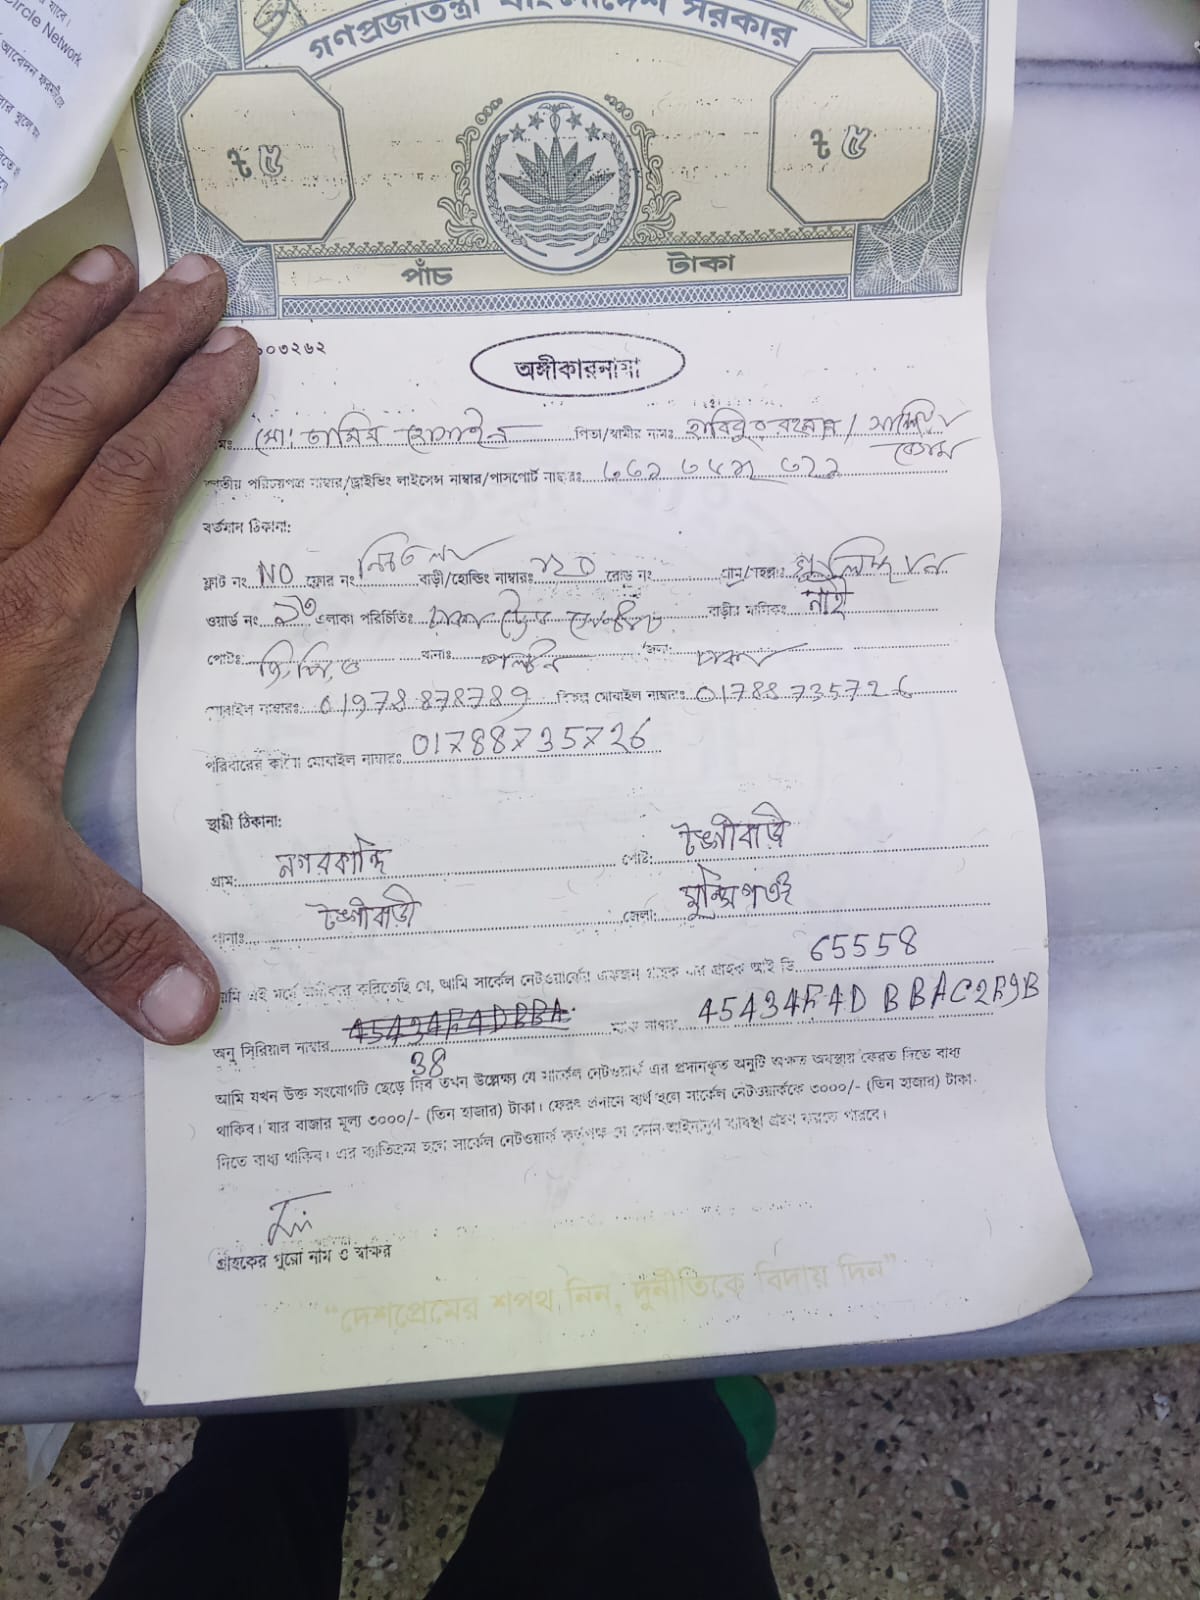 Circle Network
গণপ্রজাতন্ত্রী বাংলাদেশ সরকার
৳ ৫ ৳ ৫
পাঁচ টাকা
০০৩২৬২
অঙ্গীকারনামা
মো: তামিম হোসাইন পিতা/স্বামীর নামঃ হাবিবুর রহমান /
বেগম
জাতীয় পরিচয়পত্র নাম্বার/ড্রাইভিং লাইসেন্স নাম্বার/পাসপোর্ট নাম্বারঃ
বর্তমান ঠিকানা:
ফ্লাট নং NO ফ্লোর নং নিচতলা বাড়ী/হোল্ডিং নাম্বারঃ ১২০ রোড নং গ্রাম/মহল্লাঃ
ওয়ার্ড নং ১৩ এলাকা পরিচিতিঃ বাড়ীর মালিকঃ নাই
পোষ্টঃ জি,পি,ও থানাঃ পল্টন জেলা: ঢাকা
মোবাইল নাম্বারঃ 01978878789 বিকল্প মোবাইল নাম্বারঃ 01788735726
পরিবারের কারো মোবাইল নাম্বারঃ 01788735726
স্থায়ী ঠিকানা:
গ্রাম: নগরকান্দি পোষ্ট: টঙ্গীবাড়ী
থানাঃ টঙ্গীবাড়ী জেলা: মুন্সিগঞ্জ
আমি এই মর্মে অঙ্গীকার করিতেছি যে, আমি সার্কেল নেটওয়ার্কের একজন গ্রাহক যার গ্রাহক আই ডি 65558
অনু সিরিয়াল নাম্বার ম্যাক নাম্বার
38
আমি যখন উক্ত সংযোগটি ছেড়ে দিব তখন উল্লেক্ষ্য যে সার্কেল নেটওয়ার্ক এর প্রদানকৃত অনুটি অক্ষত অবস্থায় ফেরত দিতে বাধ্য
থাকিব। যার বাজার মূল্য ৩০০০/- (তিন হাজার) টাকা। ফেরৎ প্রদানে ব্যর্থ হলে সার্কেল নেটওয়ার্ককে ৩০০০/- (তিন হাজার) টাকা
দিতে বাধ্য থাকিব। এর ব্যতিক্রম হলে সার্কেল নেটওয়ার্ক কর্তৃপক্ষ যে কোন আইনানুগ ব্যবস্থা গ্রহণ করতে পারবে।
গ্রাহকের পুরো নাম ও স্বাক্ষর
“দেশপ্রেমের শপথ নিন, দুর্নীতিকে বিদায় দিন”